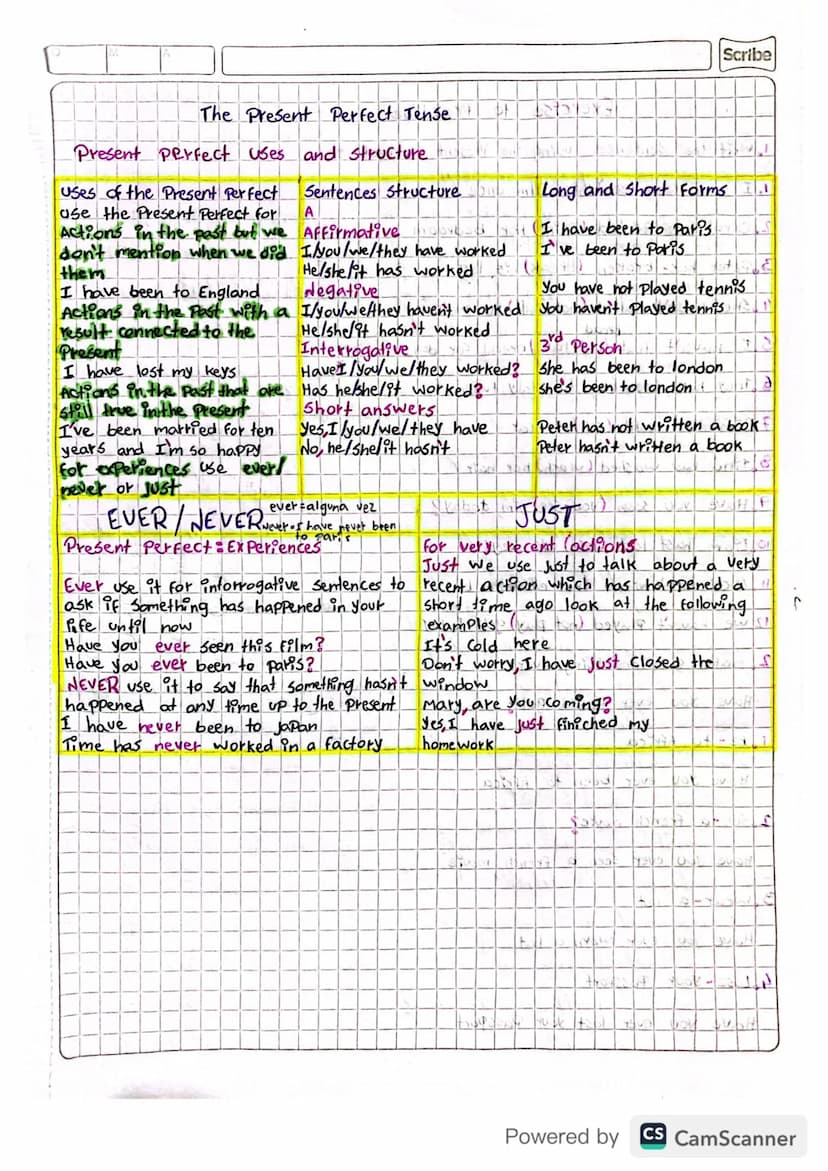 Scribe
The Present Perfect Tense
Present perfect uses and structure
Uses of the Present Perfect
Use the Present Perfect for
Actions in the past but we
don't mention when we did
them
I have been to England
Actions in the Past with a
result connected to the
Present
I have lost my keys
Actions in the Past that are
still true in the present
I've been married for ten
years and I'm so happy
for experiences use ever/
never or just
Sentences structure
A
Affirmative
I/you/we/they have worked
He/she/it has worked
Negative
I/you/we/they haven't worked
He/she/it hasn't worked
Interrogative
Have I/you/we/they worked?
Has he/she/it worked?
Short answers
Yes, I/you/we/they have
No, he/she/it hasn't
Long and short forms
I have been to Paris
I've been to Paris
You have not Played tennis
You haven't Played tennis
3rd Person
She has been to london
she's been to london
Peter has not written a book
Peter hasn't written a book
EVER/NEVER
ever=alguna vez
have never been
to Paris
Present Perfect: Experiences
Ever use it for inforrogative sentences to
ask if something has happened in your
life until now
Have you ever seen this film?
Have you ever been to Paris?
NEVER use it to say that something hasn't
happened at any time up to the Present
I have never been to Japan
Time has never worked in a factory
JUST
For very recent (actions
Just we use just to talk about a very
recent action which has happened a
short time ago look at the following
examples
It's cold here
Don't worry, I have just closed the
window
Mary, are you coming?
Yes, I have just finiched my
homework
Powered by CS CamScanner